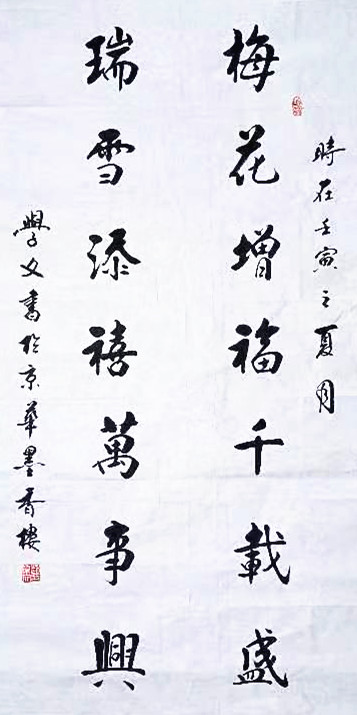 時在壬寅之夏月
梅花增福千載盛
瑞雪添禧萬事興
學文書於京華墨香樓